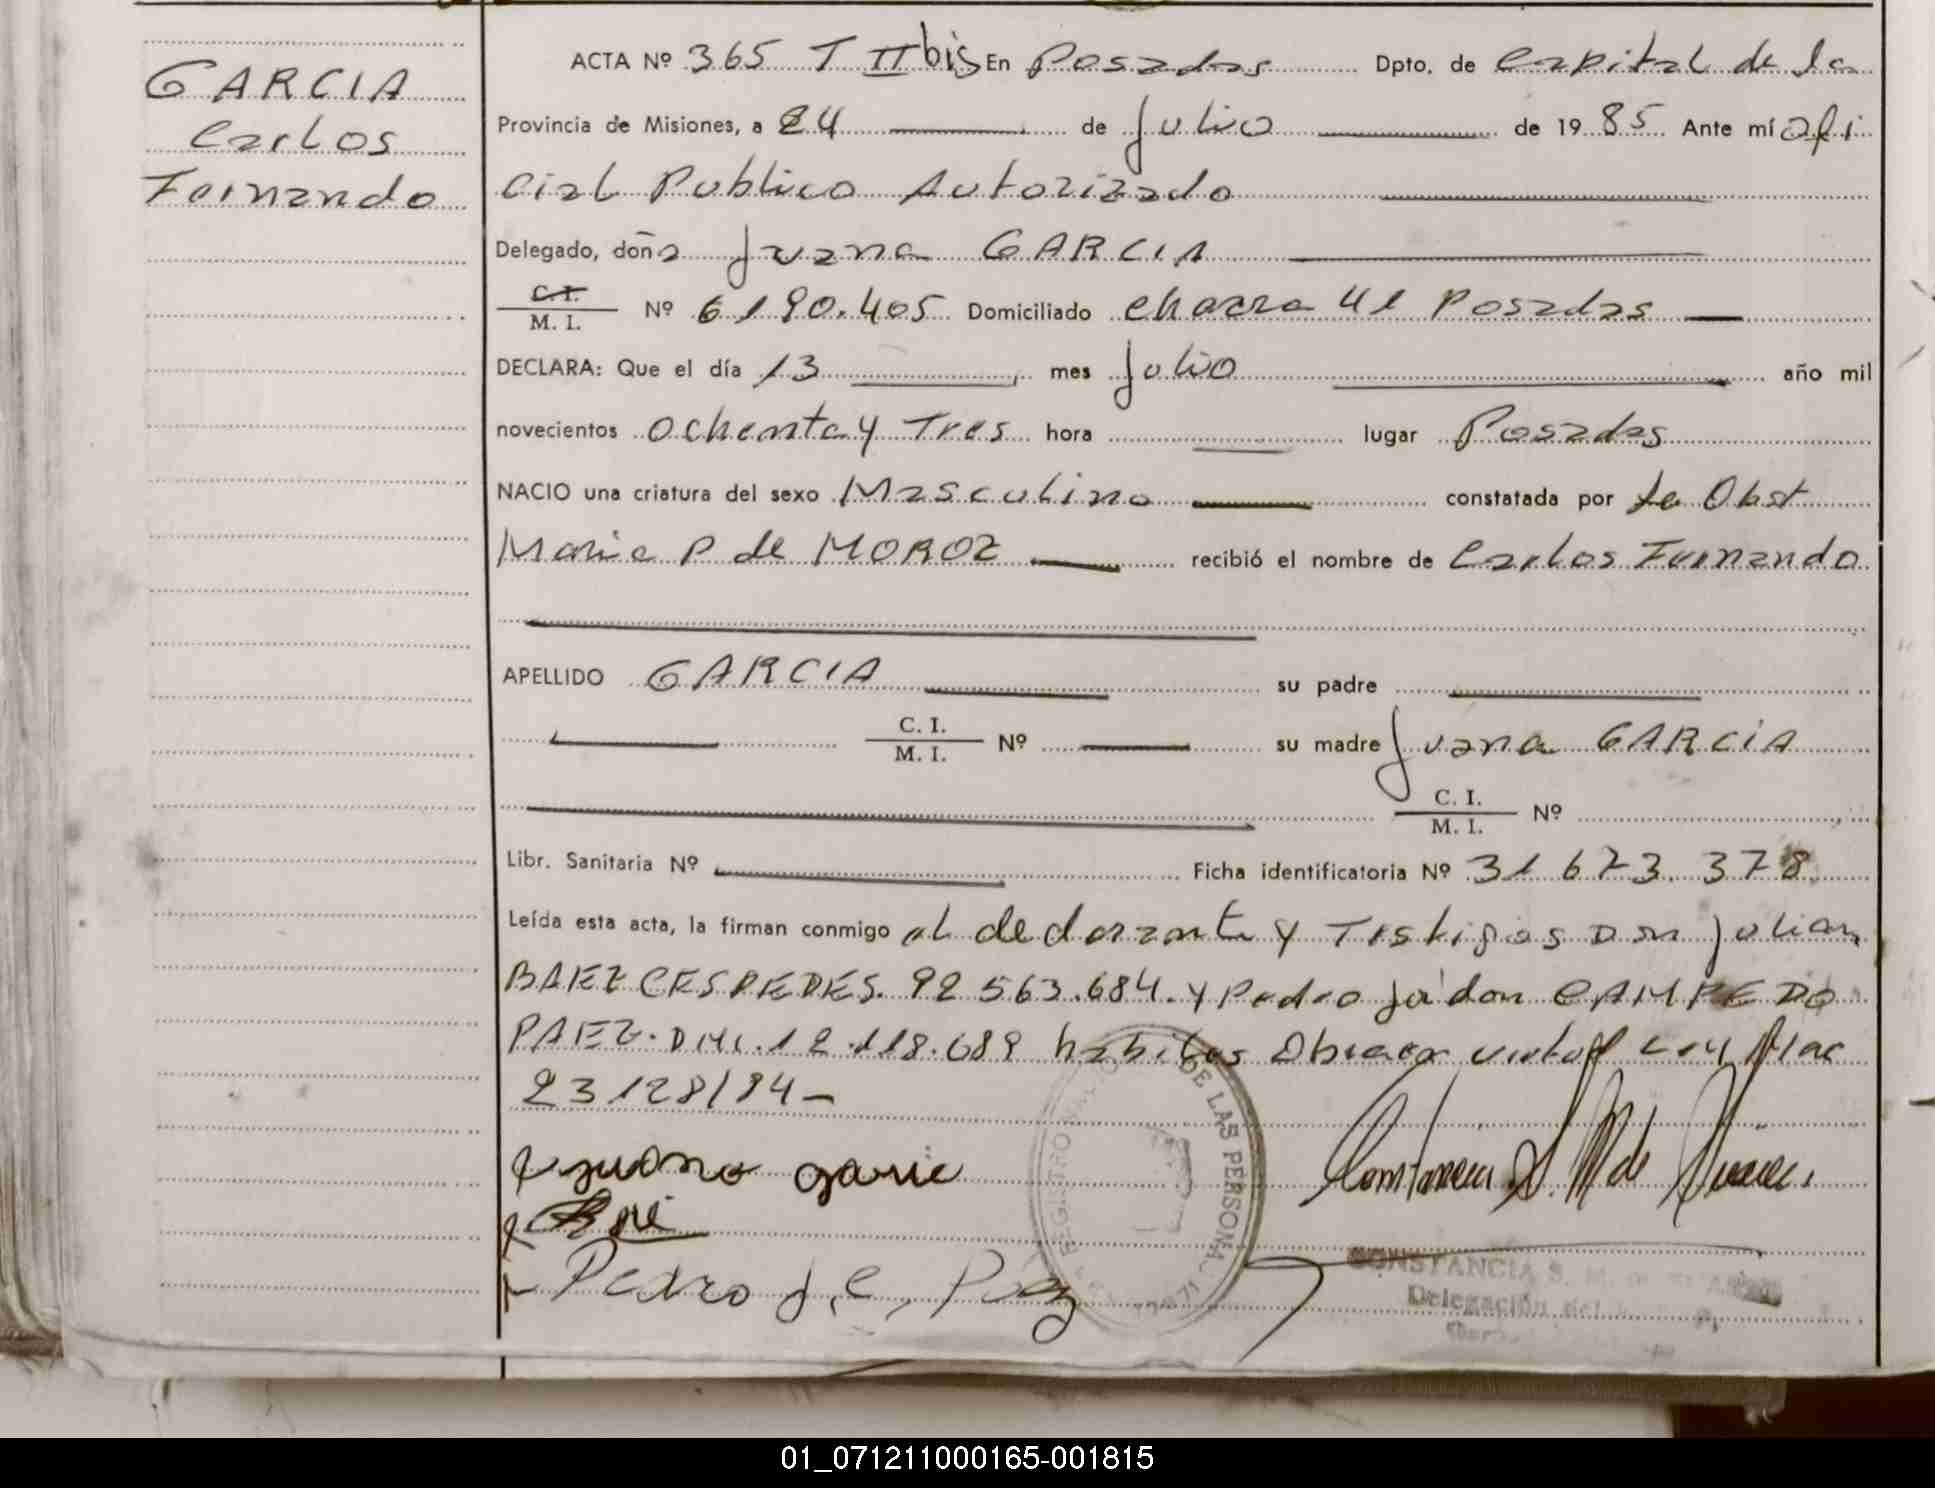 GARCIA
Carlos
Fernando
ACTA Nº 365 T II bis En Posadas Dpto. de Capital de la
Provincia de Misiones, a 24 de Julio de 1985 Ante mí ofi
cial Publico Autorizado
Delegado, doña Juana GARCIA
C.I.
M. I. Nº 6190.405 Domiciliado chacra 41 Posadas
DECLARA: Que el día 13 mes Julio año mil
novecientos ochenta y Tres hora lugar Posadas
NACIO una criatura del sexo Masculino constatada por la Obst
Maria P de MOROZ recibió el nombre de Carlos Fernando
APELLIDO GARCIA su padre
C. I.
M. I. Nº su madre Juana GARCIA
C. I.
M. I. Nº
Libr. Sanitaria Nº Ficha identificatoria Nº 31 673.378
Leída esta acta, la firman conmigo el declarante y Testigos Don Julian
BAEZ CESPEDES. 92 563.684. y Pedro CAMPEDO
PAEZ. DNI. 12.118.689 habiles Obrara Ley Nac
23128/84-
Juana garcia
Pedro J. C. Paez
REGISTRO DE LAS PERSONAS
CONSTANCIA S. M.
Delegación
01_071211000165-001815